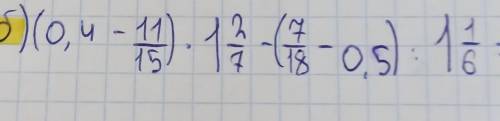 б) (0,4 - 11/15) · 1 2/7 - (7/18 - 0,5) : 1 1/6